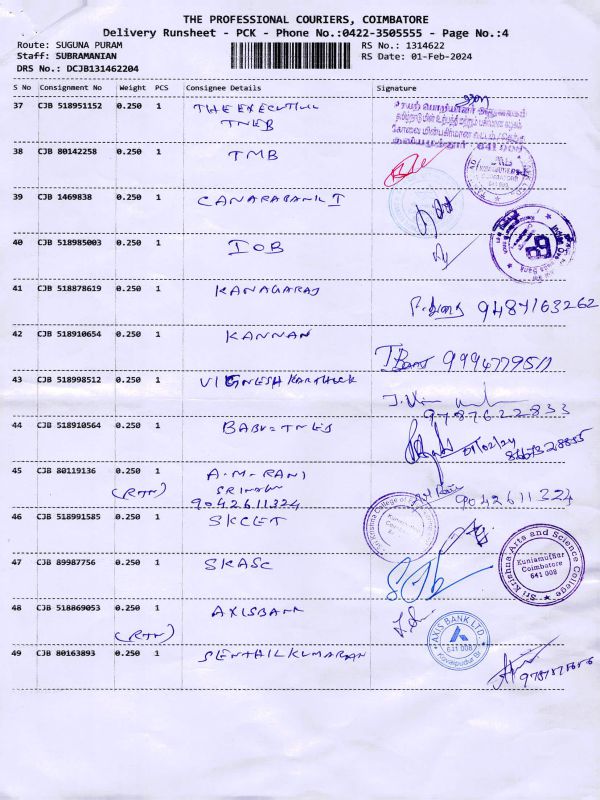 THE PROFESSIONAL COURIERS, COIMBATORE
Delivery Runsheet - PCK - Phone No.:0422-3505555 - Page No.:4
Route: SUGUNA PURAM
RS No.: 1314622
Staff: SUBRAMANIAN
RS Date: 01-Feb-2024
DRS No.: DCJB131462204
S No Consignment No Weight PCS Consignee Details Signature
37 CJB 518951152 0.250 1 THE EXECUTIVE
TNEB
641 008
38 CJB 80142258 0.250 1 TMB
39 CJB 1469838 0.250 1 CANARABANK I
40 CJB 518985003 0.250 1 IOB
41 CJB 518878619 0.250 1 KANAGARAJ
9487163262
42 CJB 518910654 0.250 1 KANNAN
9994779511
43 CJB 518998512 0.250 1 VIGNESH KARTHICK
9787622833
44 CJB 518910564 0.250 1 BABU-TNEB
01/02/24
45 CJB 80119136 0.250 1 A.M-RANI
(RTN) 
9042611324
9042611324
46 CJB 518991585 0.250 1 SKCET
47 CJB 89987756 0.250 1 SKASC
Sri Krishna Arts and Science College
Kuniamuthur
Coimbatore
641 008
48 CJB 518869053 0.250 1 AXISBANK
(RTN)
AXIS BANK LTD.
641 008
Kovaipudur Br.
49 CJB 80163893 0.250 1 SENTHILKUMARAN